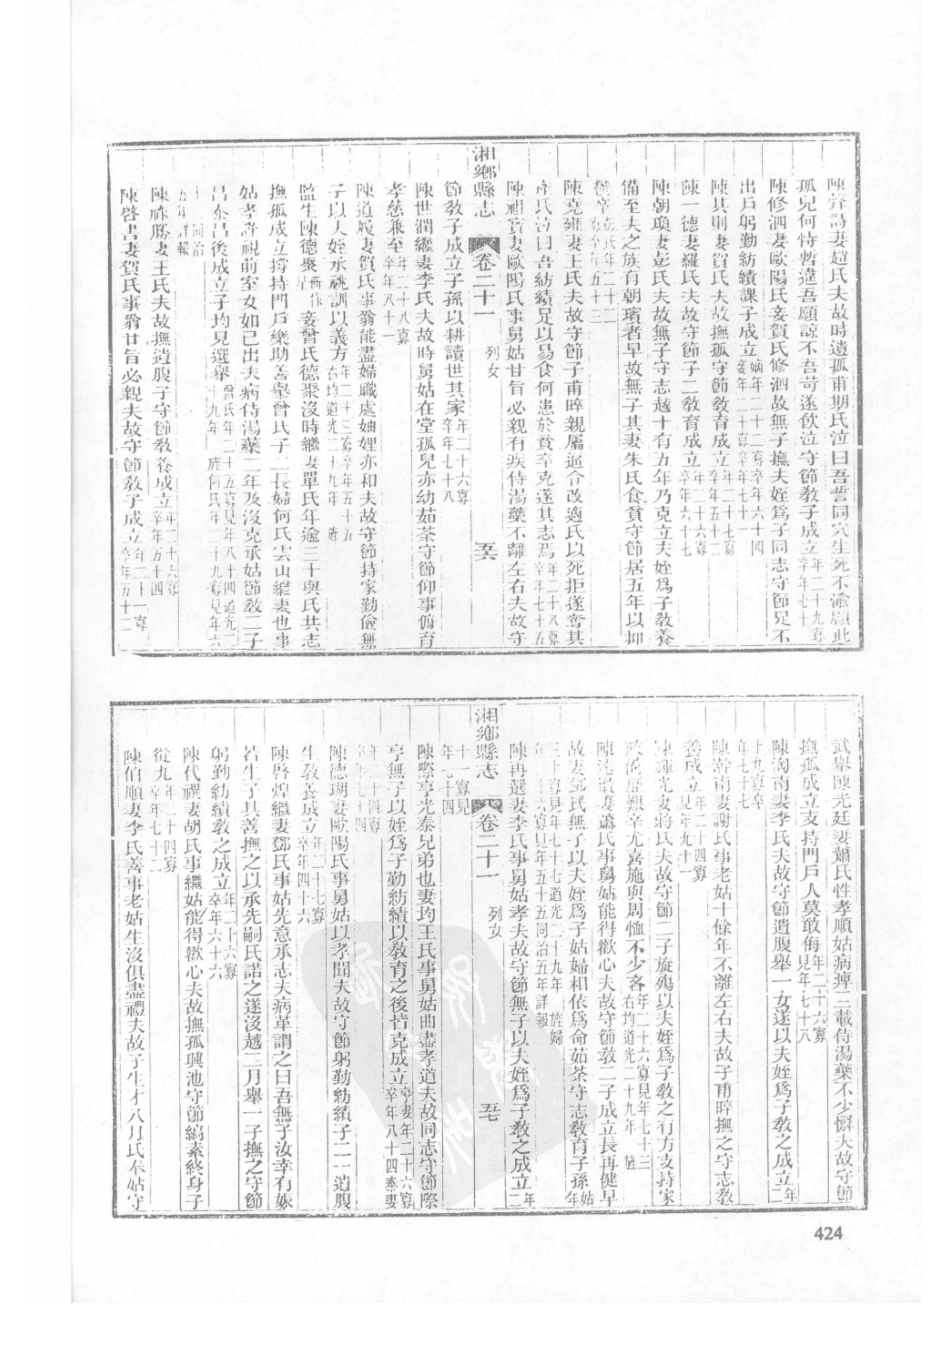 陳聲詩妻趙氏夫故時遺孤甫期氏泣曰吾誓同穴生死不渝顧此
孤兒何恃暫違吾願諒不吾苛遂飲泣守節教子成立年二十九寡卒年七十
陳修泗妻歐陽氏妾賀氏修泗故無子撫夫姪爲子同志守節足不
出戶躬勤紡績課子成立嫡年二十二寡卒年六十四妾年二十寡卒年七十
陳其則妻賀氏夫故撫孤守節敎育成立年二十七寡卒年五十二
陳一德妻羅氏夫故守節子二敎育成立年二十六寡卒年六十七
陳朝瓊妻彭氏夫故無子守志越十有五年乃克立夫姪爲子敎養
備至夫之族有朝璸者早故無子其妻朱氏食貧守節居五年以抑
鬱卒彭氏年二十二寡卒年五十三
陳堯雍妻王氏夫故守節子甫晬親屬逼令改適氏以死拒遂奪其
產氏泣曰吾紡績足以易食何患於貧卒克遂其志焉年二十八寡卒年七十五
陳祖賓妻歐陽氏事舅姑甘旨必親有疾侍湯藥不離左右夫故守
湘鄉縣志 卷二十一 列女 五六
節敎子成立子孫以耕讀世其家年二十六寡卒年七十八
陳世潤繼妻李氏夫故時舅姑在堂孤兒亦幼茹茶守節仰事俯育
孝慈兼至年二十八寡卒年八十一
陳道履妻賀氏事翁能盡婦職處妯娌亦和夫故守節持家勤儉無
子以夫姪承祧訓以義方年二十三寡卒年五十五右均道光二十九年旌
監生陳德聚妾曾氏德聚沒時繼妻單氏年逾三十與氏共志
撫孤成立撐持門戶樂助善舉曾氏子二長婦何氏雲山繼妻也事
姑孝謹視前室女如己出夫病侍湯藥二年及沒克承姑節敎二子
昌後成立子均見選舉曾氏年二十五寡見年八十四道光二十九年旌何氏年二十九寡見年六
十同治五年詳報
陳勝妻王氏夫故撫遺腹子守節敎養成立年二十六寡卒年五十四
陳啓書妻賀氏事翁甘旨必親夫故守節敎子成立年二十一寡卒年五十二
武舉陳光廷妻蕭氏性孝順姑病痺三載侍湯藥不少懈夫故守節
撫孤成立支持門戶人莫敢侮年二十六寡見年七十八
陳淘南妻李氏夫故守節遺腹舉一女遂以夫姪爲子敎之成立年二
十九寡卒年七十七
陳南妻謝氏事老姑十餘年不離左右夫故子甫晬撫之守志敎
善成立年二十四寡見年九十一
陳輝光妻蔣氏夫故守節二子旋殤以夫姪爲子敎之有方支持家
尤喜施與周恤不少吝年二十六寡見年七十三右均道光二十九年旌
陳妻蕭氏事舅姑能得歡心夫故守節敎二子成立長再健早
故妻鄧氏無子以夫姪爲子姑婦相依爲命茹茶守志敎育子孫姑年
二十寡見年七十七道光二十九年旌婦年二十六寡見年五十五同治五年詳報
陳再選妻李氏事舅姑孝夫故守節無子以夫姪爲子敎之成立年二
湘鄉縣志 卷二十一 列女 五七
十一寡見年七十四
陳際亨光泰兄弟也妻均王氏事舅姑曲盡孝道夫故同志守節際
亨無子以姪爲子勤紡績以敎育之後皆克成立亨妻年二十六寡卒年八十四泰妻
年二十四寡
陳德瑚妻歐陽氏事舅姑以孝聞夫故守節躬勤紡績子二一遺腹
生敎養成立年二十七寡卒年四十六
陳啓煌繼妻鄧氏事姑先意承志夫病革謂之曰吾無子汝幸有娠
若生子其善撫之以承先嗣氏諾之遂沒越二月舉一子撫之守節
躬勤紡績敎之成立年二十六寡卒年六十六
陳代禩妻胡氏事繼姑能得歡心夫故撫孤興池守節縞素終身子
從九年二十四寡卒年七十二
陳伯順妻李氏善事老姑生沒俱盡禮夫故子生才八月氏奉姑守
424